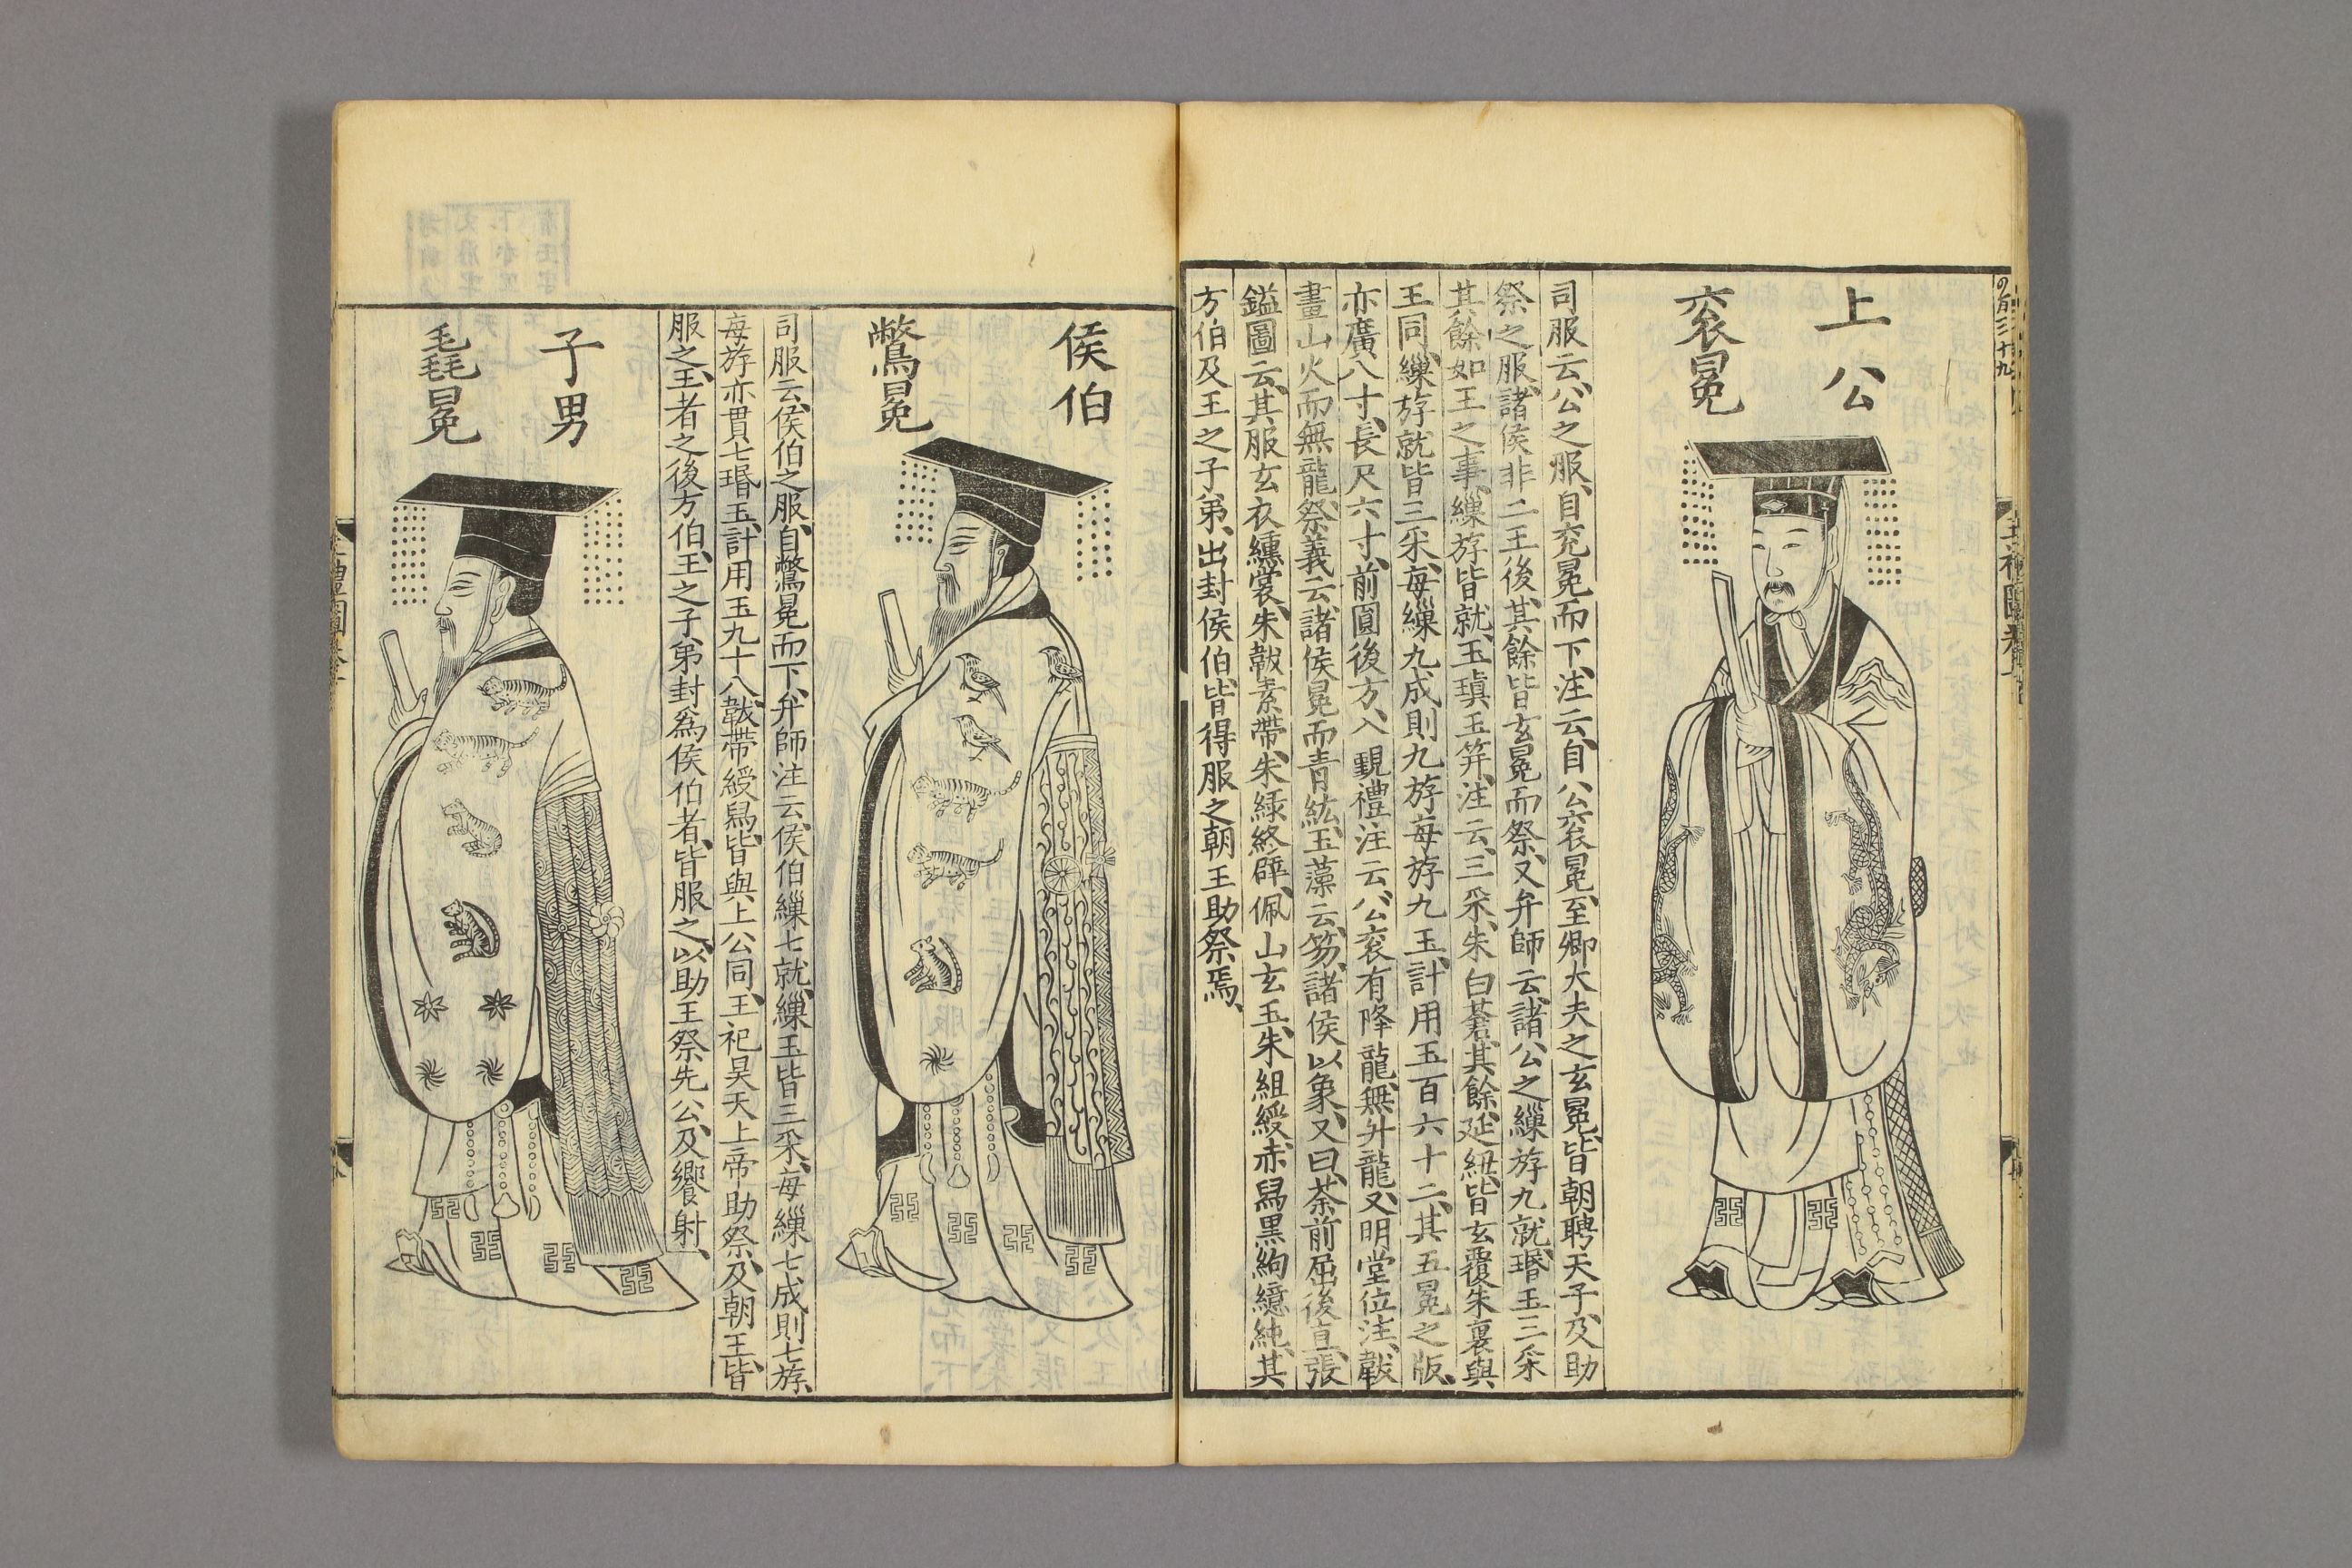 上公
袞冕
司服云公之服自衮冕而下注云自公衮冕至卿大夫之玄冕皆朝聘天子及助
祭之服諸侯非二王後其餘皆玄冕而祭又弁師云諸公之繅斿九就瑉玉三采
其餘如王之事繅斿皆就玉瑱玉笄注云三采朱白蒼其餘延紐皆玄覆朱裏與
王同繅斿就皆三采每繅九成則九斿每斿九玉計用玉百六十二其五冕之版
亦廣八寸長尺六寸前圓後方入覲禮注云公衮有降龍無升龍又明堂位注韍
畫山火而無龍祭義云諸侯冕而青紘玉藻云笏諸侯以象又曰荼前屈後直張
鎰圖云其服玄衣纁裳朱韍素帶朱綠終辟佩山玄玉朱組綬赤舄黑絇繶純其
方伯及王之子弟出封侯伯皆得服之朝王助祭焉
侯伯
鷩冕
司服云侯伯之服自鷩冕而下弁師注云侯伯繅七就繅玉皆三采每繅七成則七斿
每斿亦貫七瑉玉計用玉九十八韍帶綬舄皆與上公同王祀昊天上帝助祭及朝王皆
服之王者之後方伯王之子弟封爲侯伯者皆服之以助王祭先公及饗射
子男
毳冕